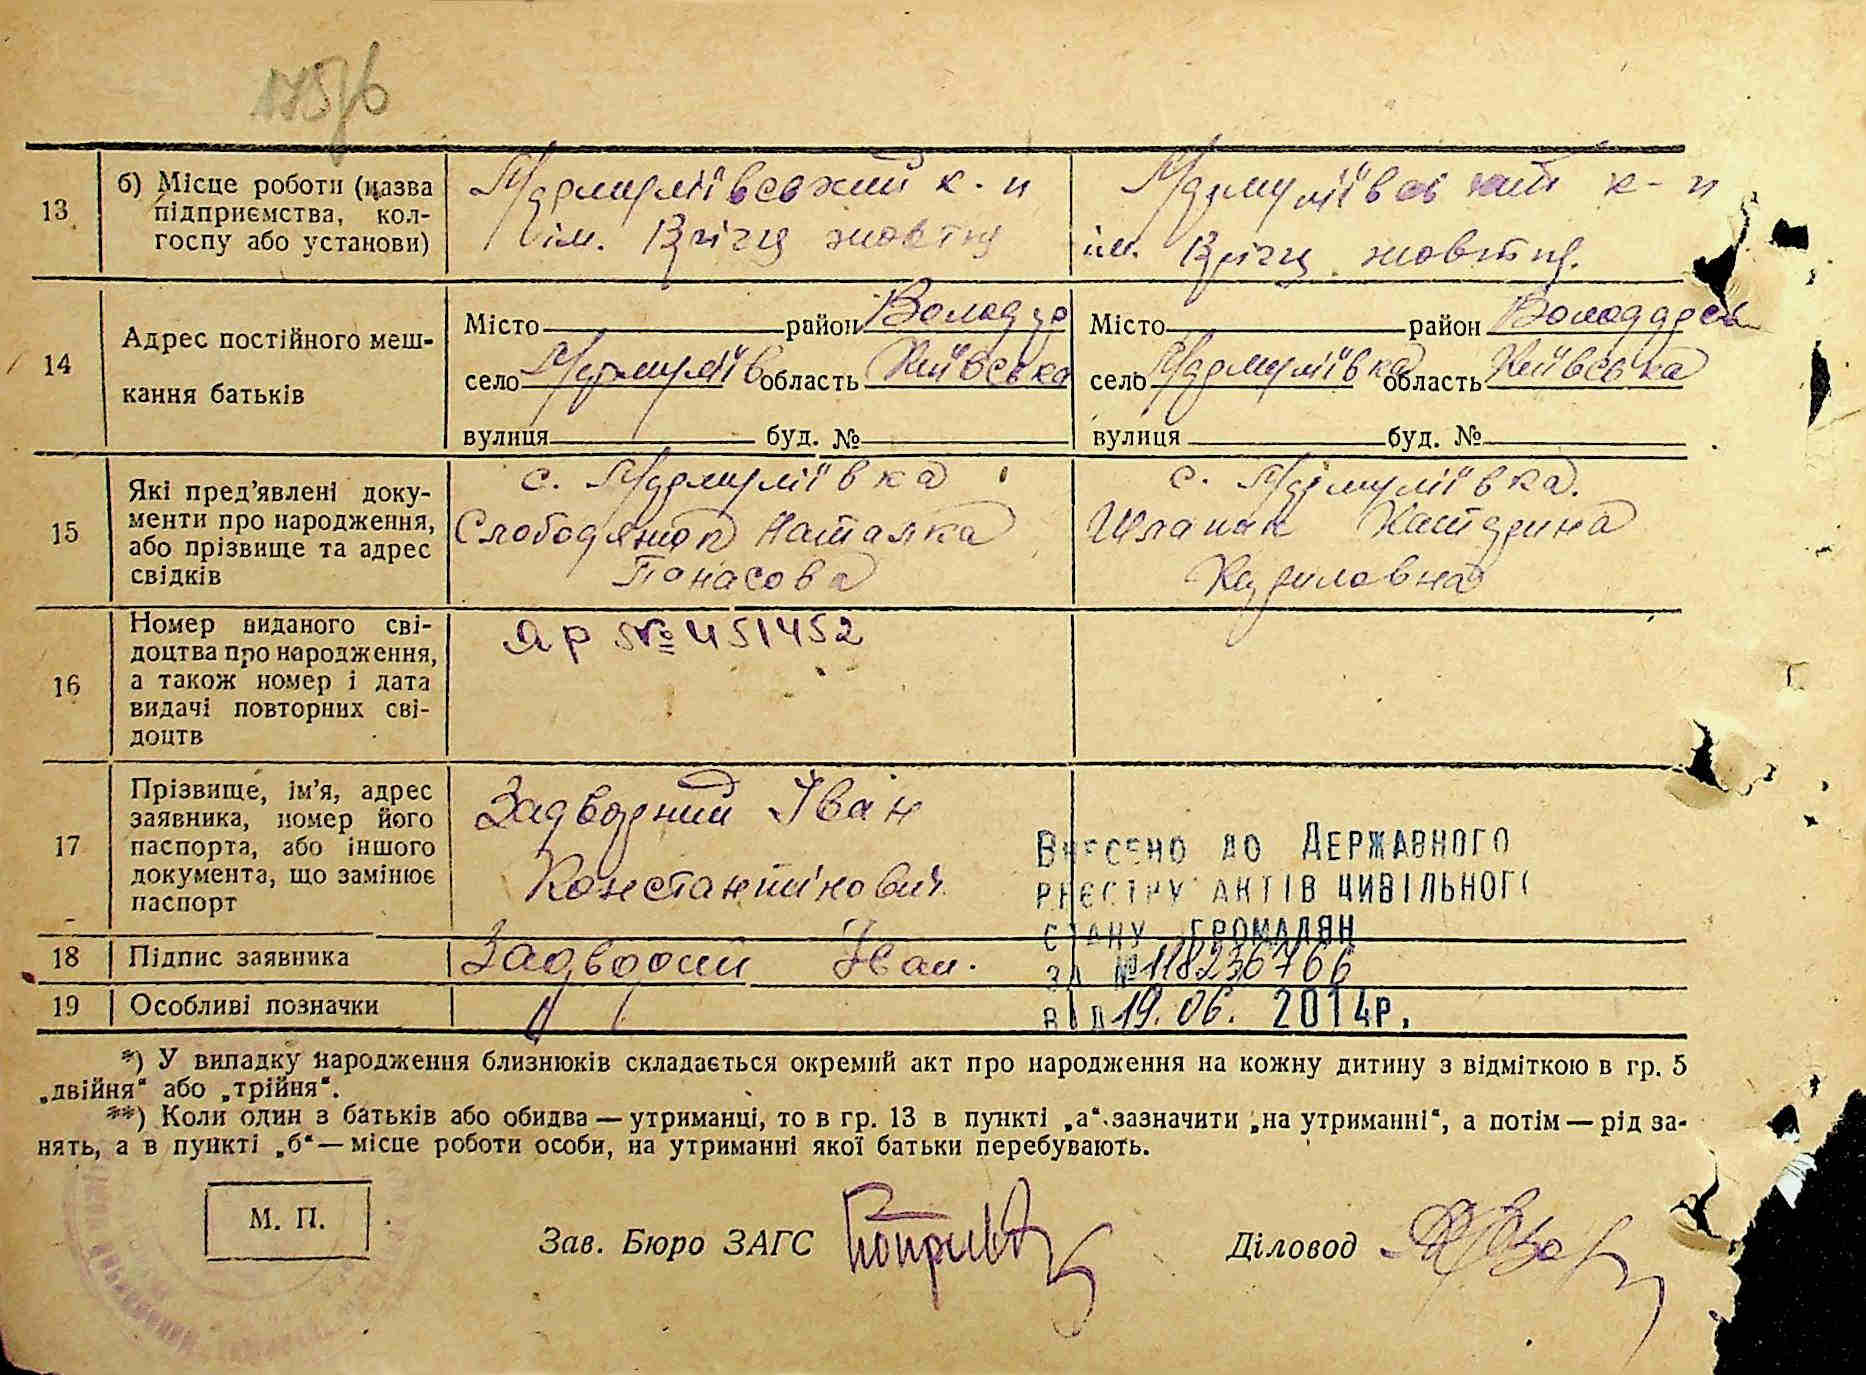 175/6
13
б) Місце роботи (назва
підприємства, кол-
госпу або установи)
к-п
ім. Врічц жовтня
к-п
ім. Врічц жовтня.
14
Адрес постійного меш-
кання батьків
Місто район Володар
село область Київська
вулиця буд. №
Місто район Володарсь
село область Київська
вулиця буд. №
15
Які пред'явлені доку-
менти про народження,
або прізвище та адрес
свідків
с.
Слободянюк Наталка
Панасова
с.
Шлапак Катерина
Кириловна
16
Номер виданого сві-
доцтва про народження,
а також номер і дата
видачі повторних сві-
доцтв
ЯР № 451452
17
Прізвище, ім'я, адрес
заявника, номер його
паспорта, або іншого
документа, що замінює
паспорт
Задворний Іван
Константінович
Внесено до Державного
реєстру актів цивільного
стану громадян
за № 118236766
від 19.06. 2014р.
18
Підпис заявника
Іван.
19
Особливі позначки
*) У випадку народження близнюків складається окремий акт про народження на кожну дитину з відміткою в гр. 5
„двійня“ або „трійня“.
**) Коли один з батьків або обидва — утриманці, то в гр. 13 в пункті „а“ зазначити „на утриманні“, а потім — рід за-
нять, а в пункті „б“ — місце роботи особи, на утриманні якої батьки перебувають.
М. П.
Зав. Бюро ЗАГС
Діловод